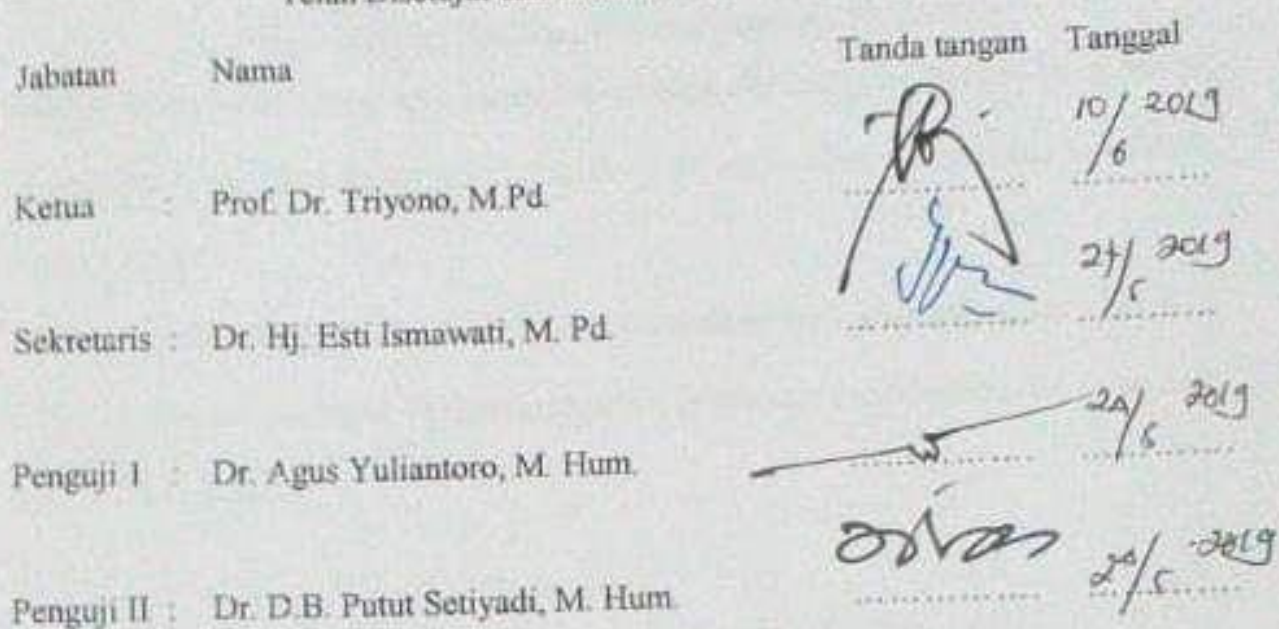 Jabatan Nama Tanda tangan Tanggal
10/6 2019
Ketua : Prof. Dr. Triyono, M.Pd.
2019
Sekretaris : Dr. Hj. Esti Ismawati, M. Pd.
2019
Penguji I : Dr. Agus Yuliantoro, M. Hum.
2019
Penguji II : Dr. D.B. Putut Setiyadi, M. Hum.